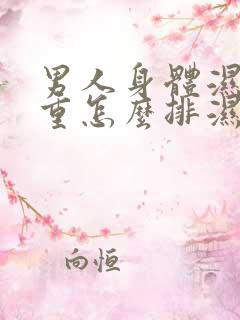 男人身體濕
重怎麼排濕
向恒